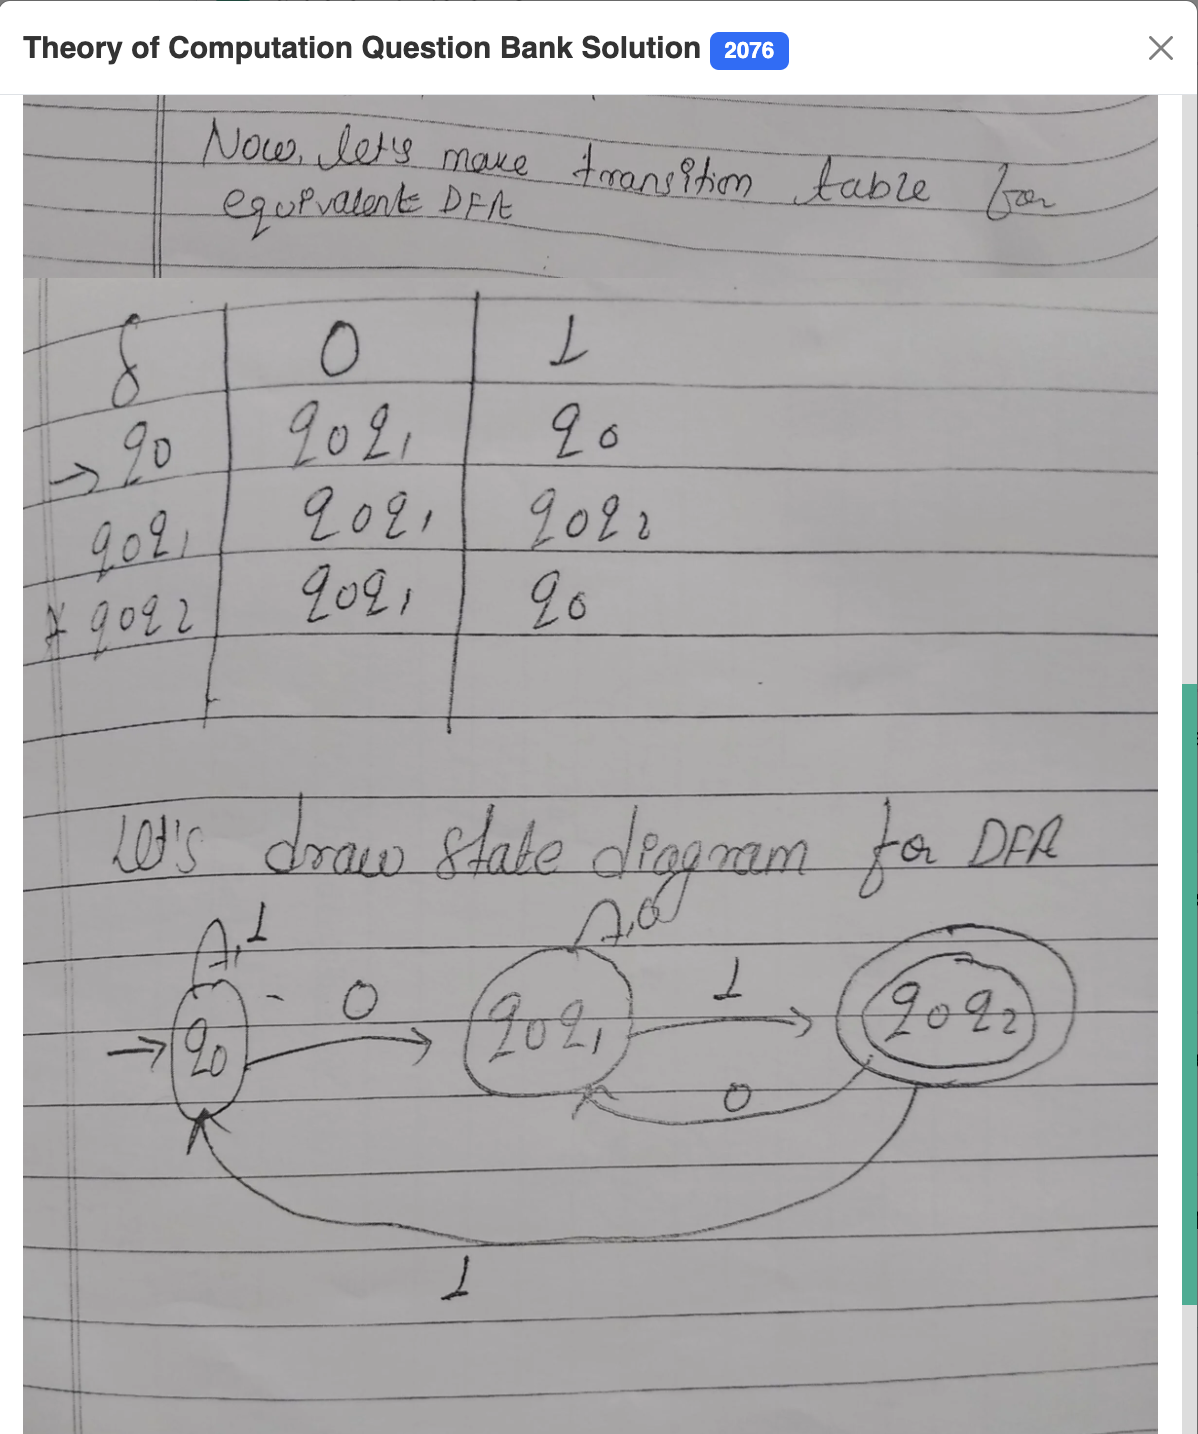 Theory of Computation Question Bank Solution 2076
Now, let's make transition table for
equivalent DFA
δ 0 1
→ q0 q0q1 q0
q0q1 q0q1 q0q2
* q0q2 q0q1 q0
Let's draw state diagram for DFA
1 0
0 1
→ q0 q0q1 q0q2
0
1